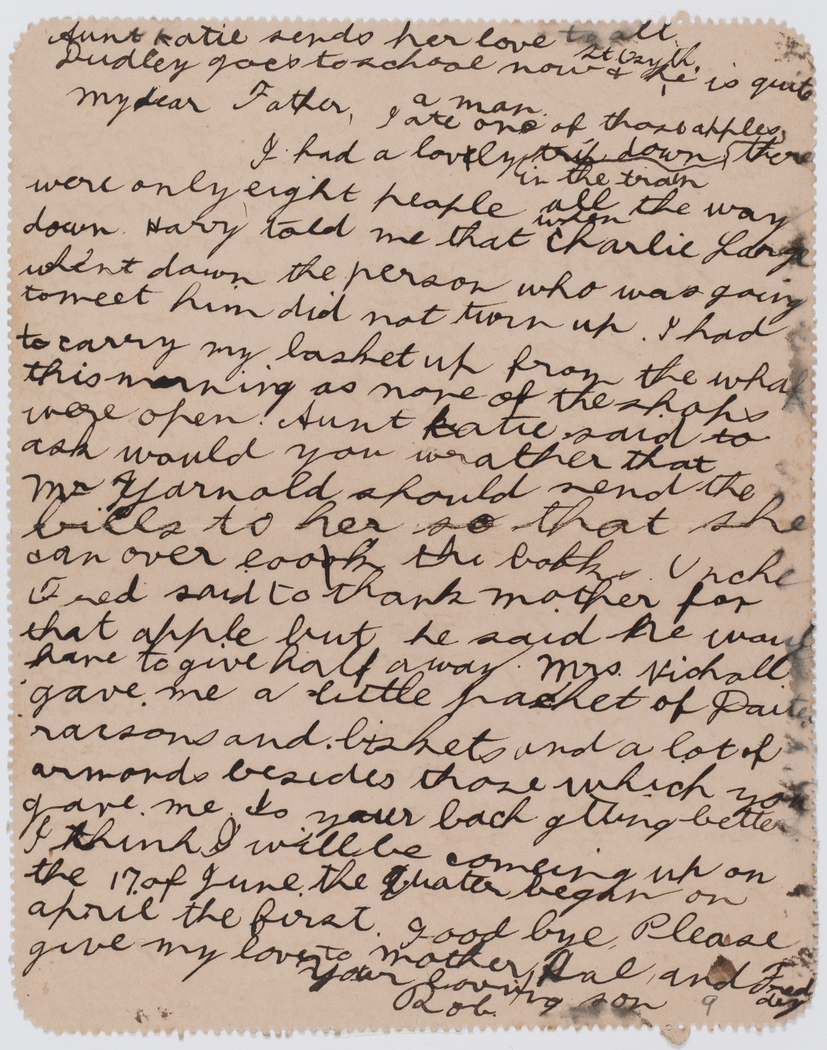 Aunt Katie sends her love to all.
Dudley goes to school now at & he is quite
a man.
My dear Father, I ate one of those apples.
I had a lovely trip down, there
in the train
were only eight people all the way
down. Harry told me that when Charlie Large
whent down the person who was going
to meet him did not turn up. I had
to carry my basket up from the wharf
this morning as none of the shops
were open. Aunt Katie said to
ask would you wrather that
Mr Yarnold should send the
bills to her so that she
can over the books. Uncle
Fred said to thank mother for
that apple but he said he would
have to give half away. Mrs. Nicholl
gave me a little packet of
raisons and biskets and a lot of
armonds besides those which you
gave me. Is your back gtting better
I think I will be comeing up on
the 17 of June. the Quater began on
april the first. Good bye. Please
give my love to mother, Hal, and Fred
Your loving son
Rob.
9